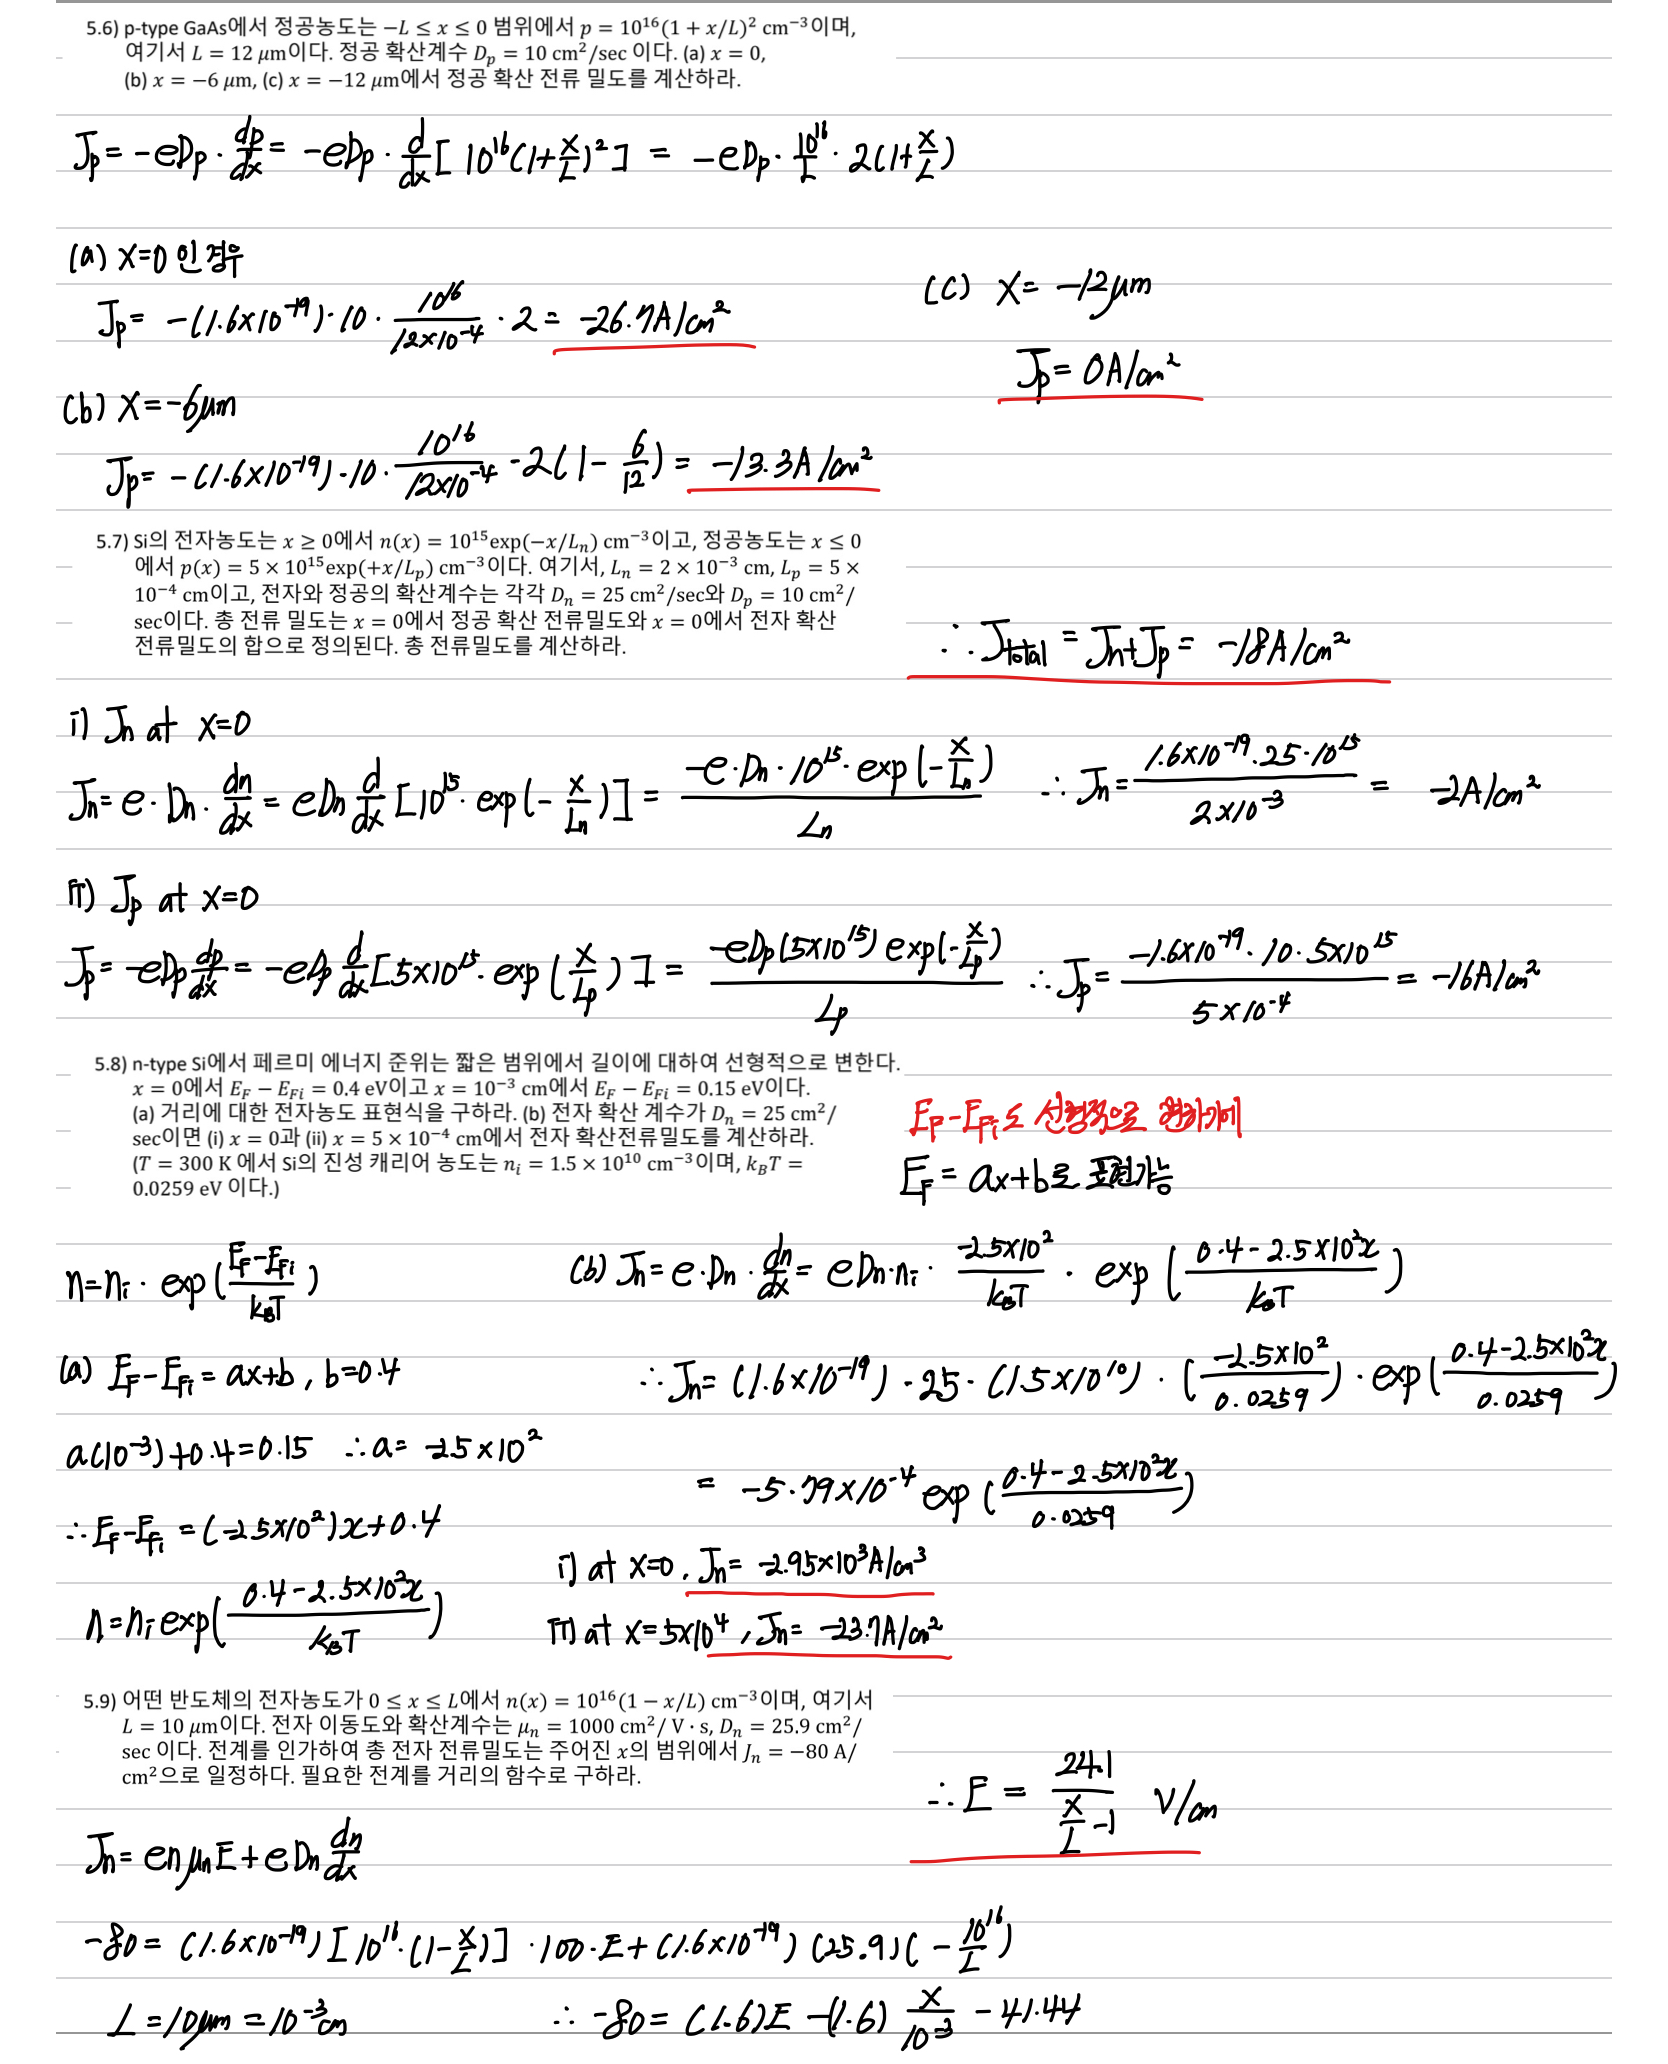 5.6) p-type GaAs에서 정공농도는 −L ≤ x ≤ 0 범위에서 p = 10¹⁶(1 + x/L)² cm⁻³이며,
여기서 L = 12 μm이다. 정공 확산계수 Dₚ = 10 cm²/sec 이다. (a) x = 0,
(b) x = −6 μm, (c) x = −12 μm에서 정공 확산 전류 밀도를 계산하라.
Jp = −eDp · dp/dx = −eDp · d/dx [10¹⁶(1+x/L)²] = −eDp · 10¹⁶/L · 2(1+x/L)
(a) x=0 인 경우
Jp = −(1.6×10⁻¹⁹)·10 · 10¹⁶/(12×10⁻⁴) · 2 = −26.7A/cm²
(b) x=−6μm
Jp = −(1.6×10⁻¹⁹)·10 · 10¹⁶/(12×10⁻⁴) · 2(1 − 6/12) = −13.3A/cm²
(c) x = −12μm
Jp = 0A/cm²
5.7) Si의 전자농도는 x ≥ 0에서 n(x) = 10¹⁵exp(−x/Lₙ) cm⁻³이고, 정공농도는 x ≤ 0
에서 p(x) = 5 × 10¹⁵exp(+x/Lₚ) cm⁻³이다. 여기서, Lₙ = 2 × 10⁻³ cm, Lₚ = 5 ×
10⁻⁴ cm이고, 전자와 정공의 확산계수는 각각 Dₙ = 25 cm²/sec와 Dₚ = 10 cm²/
sec이다. 총 전류 밀도는 x = 0에서 정공 확산 전류밀도와 x = 0에서 전자 확산
전류밀도의 합으로 정의된다. 총 전류밀도를 계산하라.
∴ Jtotal = Jn+Jp = −18A/cm²
i) Jn at x=0
Jn = e · Dn · dn/dx = eDn d/dx [10¹⁵ · exp(−x/Ln)] = −e·Dn·10¹⁵·exp(−x/Ln) / Ln ∴ Jn = 1.6×10⁻¹⁹·25·10¹⁵ / 2×10⁻³ = −2A/cm²
ii) Jp at x=0
Jp = −eDp dp/dx = −eDp d/dx [5×10¹⁵ · exp(x/Lp)] = −eDp(5×10¹⁵) exp(−x/Lp) / Lp ∴ Jp = −1.6×10⁻¹⁹·10·5×10¹⁵ / 5×10⁻⁴ = −16A/cm²
5.8) n-type Si에서 페르미 에너지 준위는 짧은 범위에서 길이에 대하여 선형적으로 변한다.
x = 0에서 E_F − E_Fi = 0.4 eV이고 x = 10⁻³ cm에서 E_F − E_Fi = 0.15 eV이다.
(a) 거리에 대한 전자농도 표현식을 구하라. (b) 전자 확산 계수가 Dₙ = 25 cm²/
sec이면 (i) x = 0과 (ii) x = 5 × 10⁻⁴ cm에서 전자 확산전류밀도를 계산하라.
(T = 300 K 에서 Si의 진성 캐리어 농도는 nᵢ = 1.5 × 10¹⁰ cm⁻³이며, k_BT =
0.0259 eV 이다.)
E_F−E_Fi도 선형적으로 변하기에
E_F = ax+b로 표현가능
n = ni · exp((E_F−E_Fi)/k_BT)
(a) E_F−E_Fi = ax+b, b=0.4
a(10⁻³)+0.4=0.15 ∴ a = −2.5×10²
∴ E_F−E_Fi = (−2.5×10²)x+0.4
n = ni exp((0.4−2.5×10²x)/k_BT)
(b) Jn = e·Dn · dn/dx = eDn·ni · −2.5×10²/k_BT · exp((0.4−2.5×10²x)/k_BT)
∴ Jn = (1.6×10⁻¹⁹)·25·(1.5×10¹⁰)·(−2.5×10²/0.0259)·exp((0.4−2.5×10²x)/0.0259)
= −5.79×10⁻⁴ exp((0.4−2.5×10²x)/0.0259)
i) at x=0, Jn = −2.95×10³A/cm³
ii) at x=5×10⁴, Jn = −23.7A/cm²
5.9) 어떤 반도체의 전자농도가 0 ≤ x ≤ L에서 n(x) = 10¹⁶(1 − x/L) cm⁻³이며, 여기서
L = 10 μm이다. 전자 이동도와 확산계수는 μₙ = 1000 cm²/ V · s, Dₙ = 25.9 cm²/
sec 이다. 전계를 인가하여 총 전자 전류밀도는 주어진 x의 범위에서 Jₙ = −80 A/
cm²으로 일정하다. 필요한 전계를 거리의 함수로 구하라.
∴ E = 24.1 / (x/L −1) V/cm
Jn = enμnE + eDn dn/dx
−80 = (1.6×10⁻¹⁹)[10¹⁶·(1−x/L)]·100·E+(1.6×10⁻¹⁹)(25.9)(−10¹⁶/L)
L=10μm=10⁻³cm ∴ −80 = (1.6)E −(1.6) x/10⁻³ − 41.44